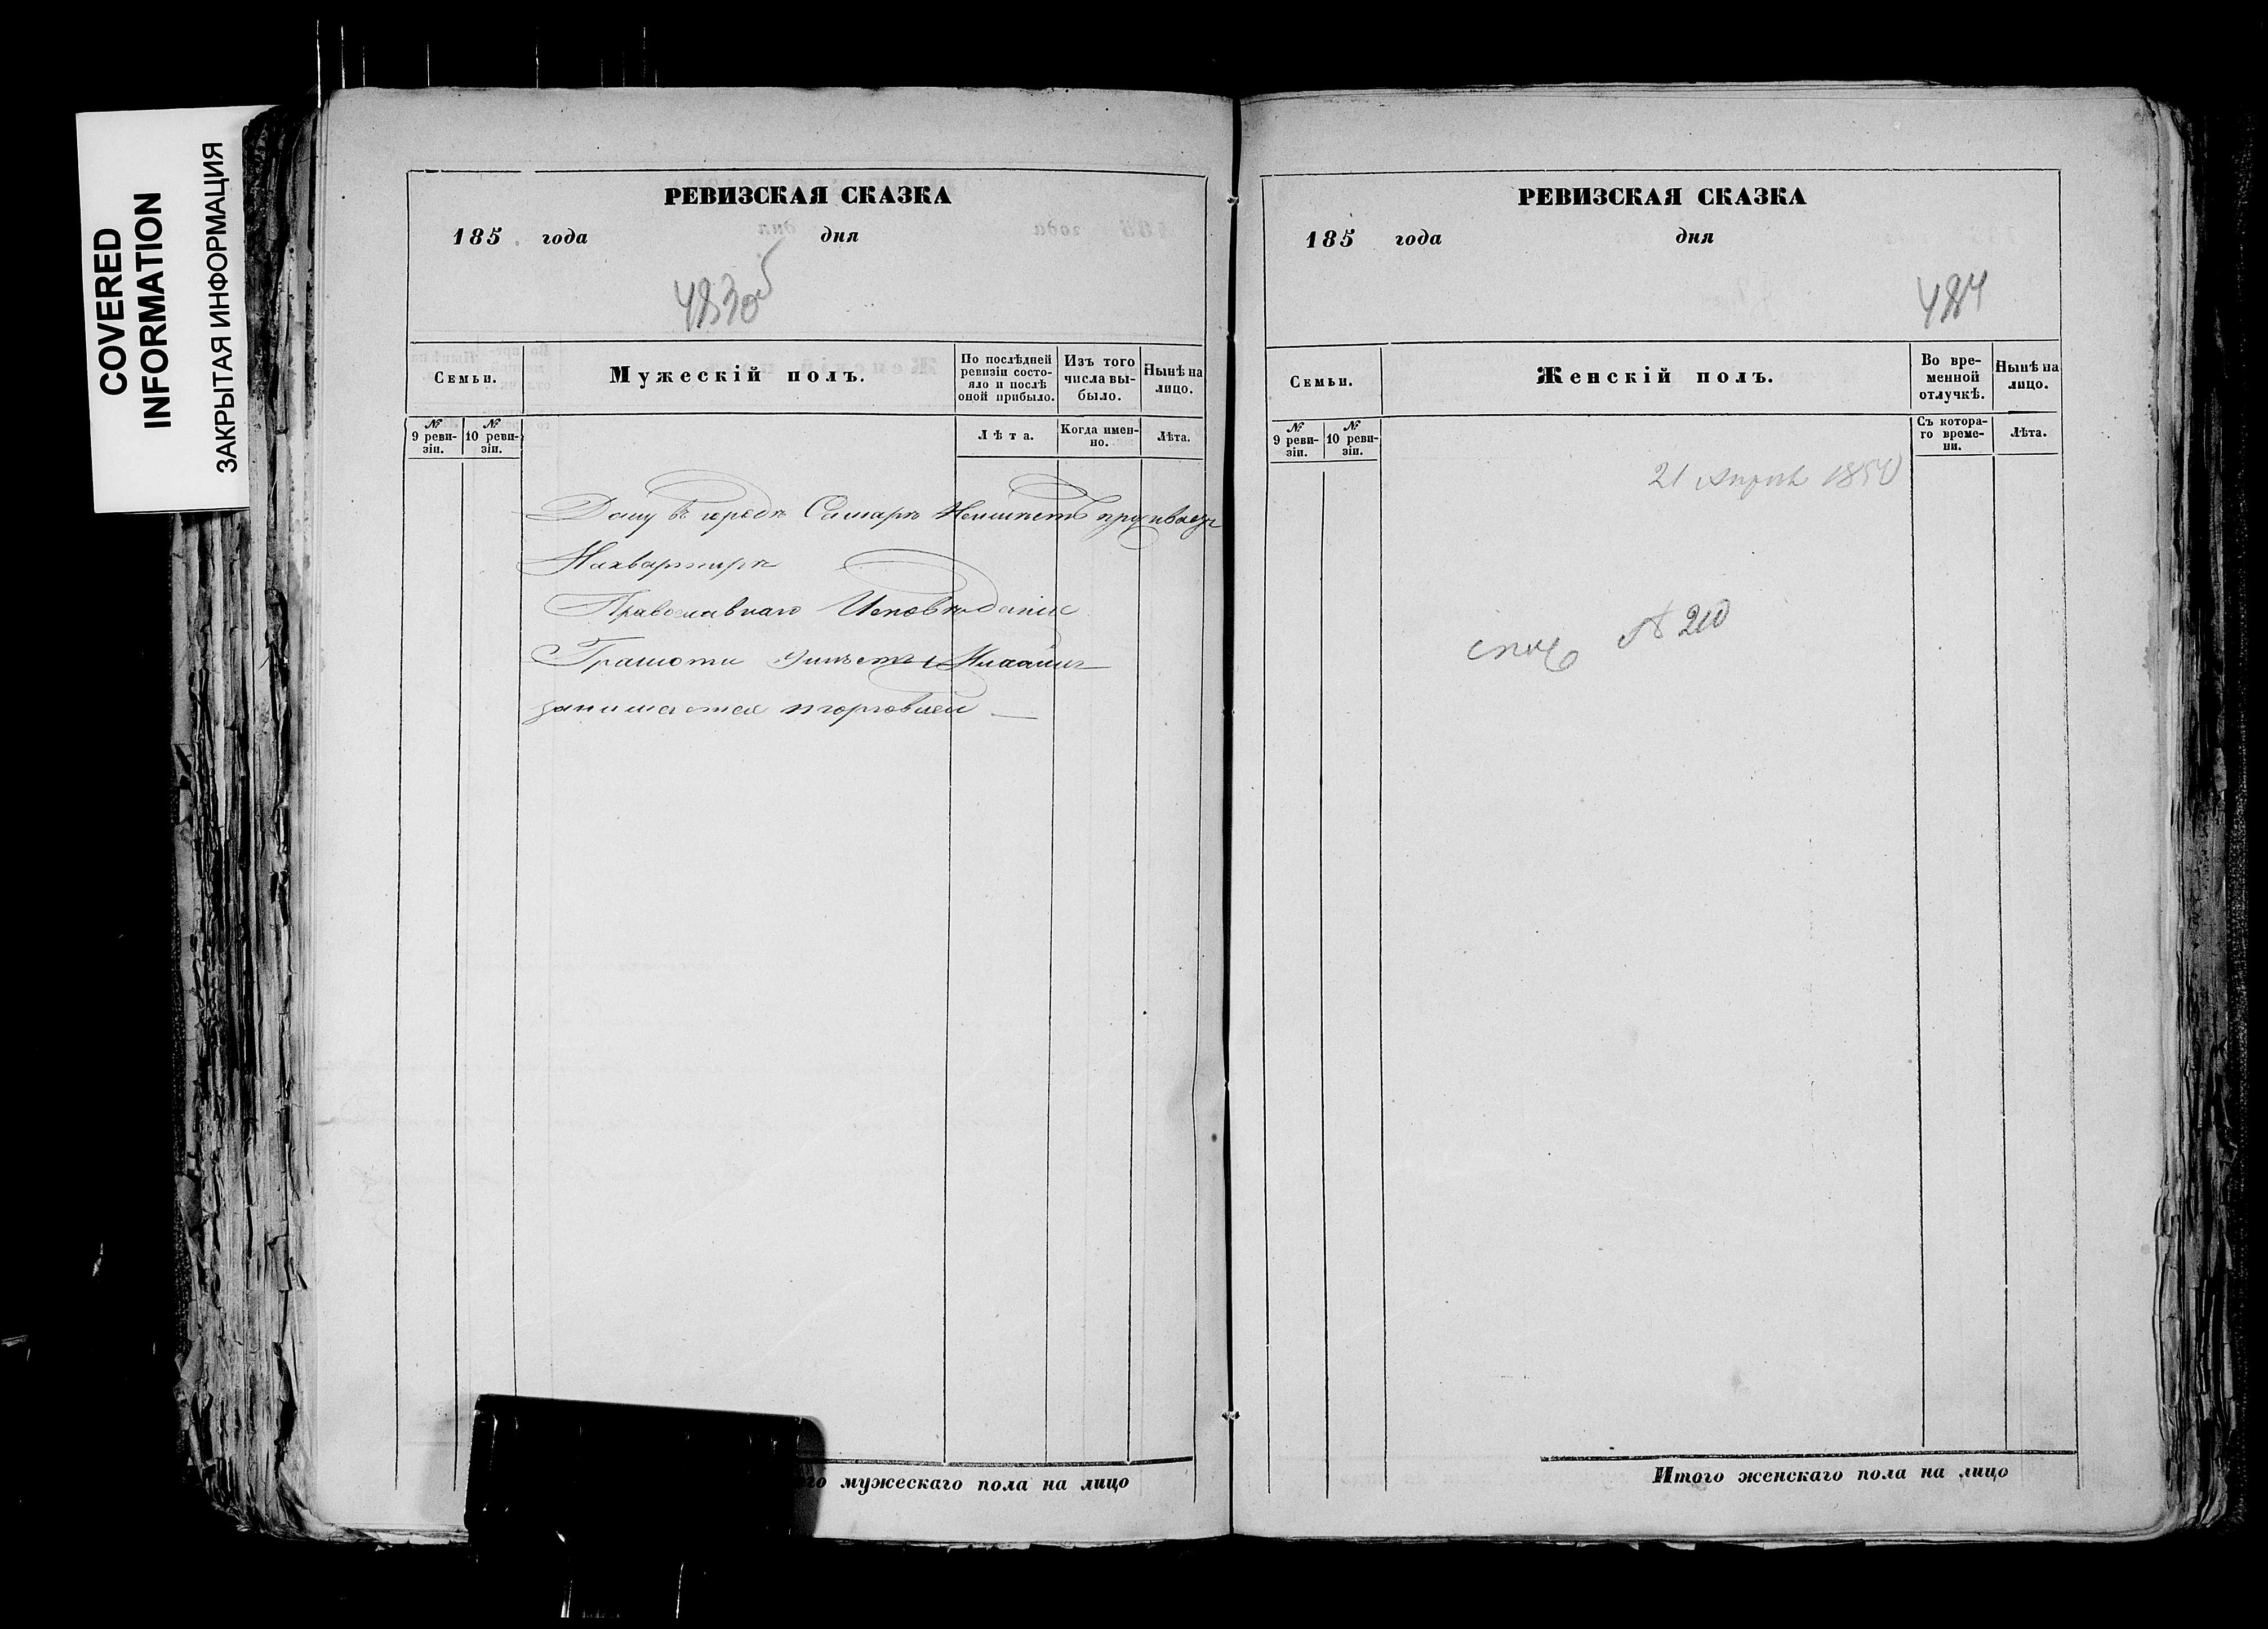 COVERED
INFORMATION
ЗАКРЫТАЯ ИНФОРМАЦИЯ
РЕВИЗСКАЯ СКАЗКА
185 года дня
483об
Семьи.
Мужескій полъ.
По послѣдней ревизіи состо-
яло и послѣ оной прибыло.
Изъ того числа вы-
было.
Нынѣ на лицо.
№ 9 реви-
зіи.
№ 10 реви-
зіи.
Лѣта.
Когда имен-
но.
Лѣта.
Дому въ городѣ Самарѣ Неимѣетъ проживаетъ
Наквартирѣ
Православнаго Исповѣданія
Грамоти Умѣетъ
занимается торговлей
го мужескаго пола на лицо
РЕВИЗСКАЯ СКАЗКА
185 года дня
484
Семьи.
Женскій полъ.
Во вре-
менной
отлучкѣ.
Нынѣ на
лицо.
№ 9 реви-
зіи.
№ 10 реви-
зіи.
Съ котора-
го време-
ни.
Лѣта.
21 Апрѣля 185
№ 210
Итого женскаго пола на лицо